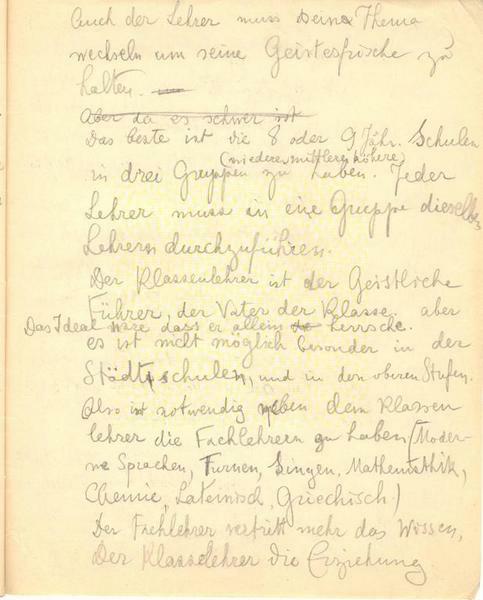 Auch der Lehrer muss seine Thema
wechseln um seine Geistesfrische zu
halten.
Aber da es schwer ist
Das beste ist die 8 oder 9 Jähr. Schulen
(niedere, mittlere, höhere)
in drei Gruppen zu haben. Jeder
Lehrer muss in eine Gruppe dieselbe
Lehrern durchzuführen.
Der Klassenlehrer ist der Geistliche
Führer, der Vater der Klasse. aber
Das Ideal wäre dass er allein herrsche.
es ist nicht möglich besonder in der
Städtschulen, und in den oberen Stufen.
Also ist notwendig neben dem Klassen
lehrer die Fachlehrern zu haben (Moder-
ne Sprachen, Turnen, Singen, Mathemathik,
Chemie, Lateinisch, Griechisch)
Der Fachlehrer vertritt mehr das Wissen,
Der Klasselehrer die Erziehung.